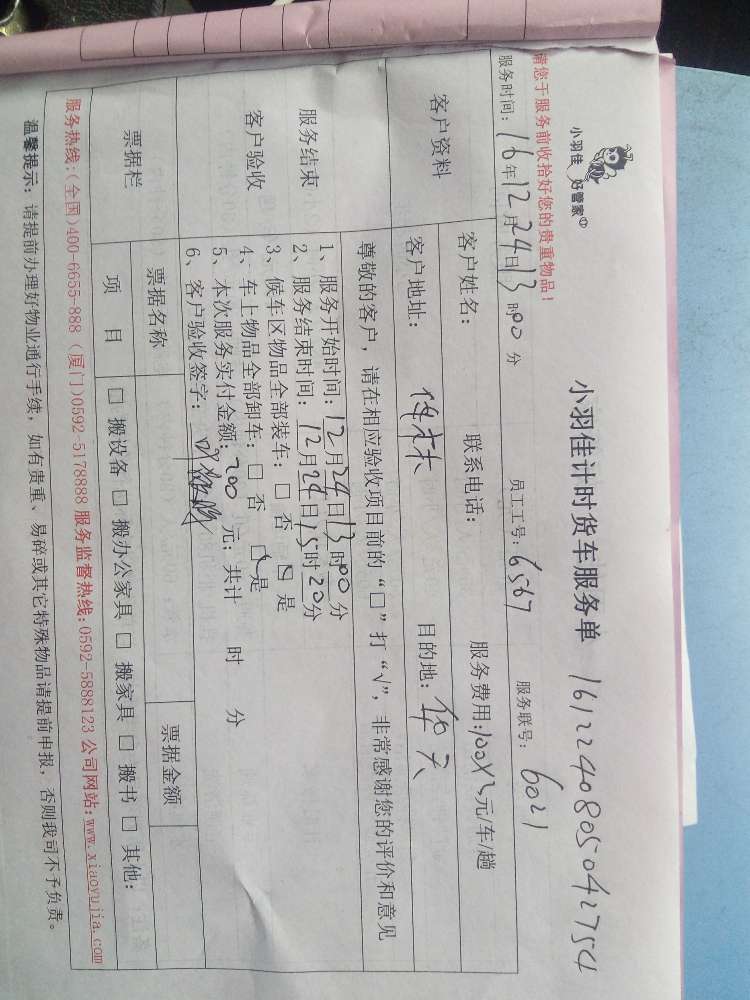 小羽佳 好管家
小羽佳计时货车服务单 1612240805042754
请您于服务前收拾好您的贵重物品!
服务时间: 16年12月24日13时00分 员工工号: 6567 服务联号: 6021
客户资料
客户姓名: 联系电话: 服务费用:100X2元/车/趟
客户地址: 目的地:
服务结束
客户验收
尊敬的客户,请在相应验收项目前的“□”打“√”,非常感谢您的评价和意见
1、服务开始时间:12月24日13时00分
2、服务结束时间:12月24日15时20分
3、候车区物品全部装车:□ 否 ☑ 是
4、车上物品全部卸车:□ 否 ☑ 是
5、本次服务实付金额:200 元;共计 时 分
6、客户验收签字:
票据栏
票据名称 票据金额
项 目 □ 搬设备 □ 搬办公家具 □ 搬家具 □ 搬书 □ 其他:
服务热线:(全国)400-6655-888 (厦门)0592-5178888 服务监督热线:0592-5888123 公司网站:www.xiaoyujia.com
温馨提示:请提前办理好物业通行手续,如有贵重、易碎或其它特殊物品请提前申报,否则我司不予负责。